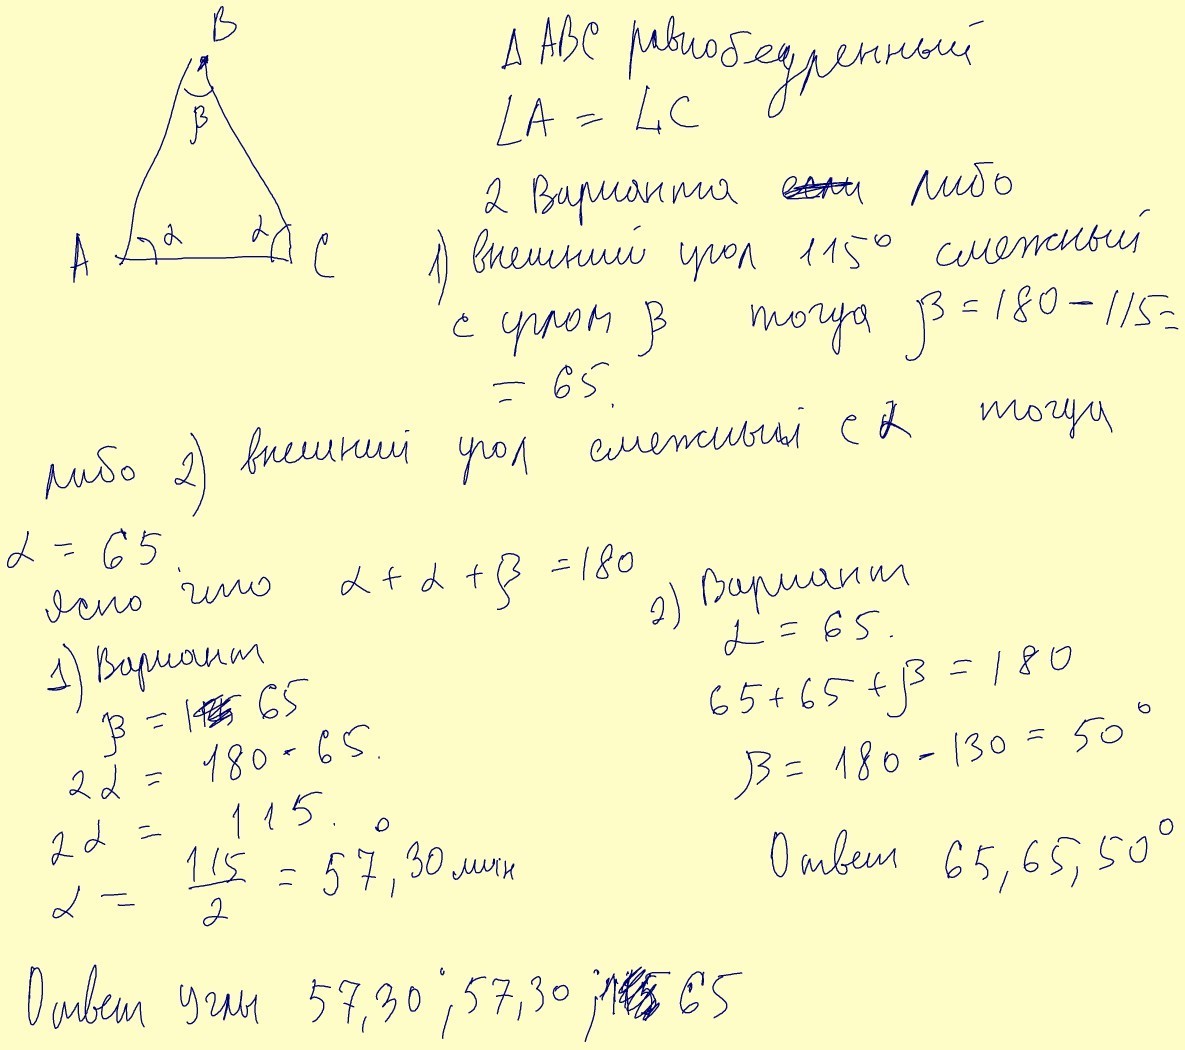 B
β
A α α C
Δ ABC равнобедренный
∠A = ∠C
2 Варианта либо
1) внешний угол 115° смежный
с углом β тогда β = 180 - 115 =
= 65.
либо 2) внешний угол смежный с α тогда
α = 65.
Ясно что α + α + β = 180
1) Вариант
β = 65
2α = 180 - 65.
2α = 115.
α = 115/2 = 57°, 30 мин
2) Вариант
α = 65.
65 + 65 + β = 180
β = 180 - 130 = 50°
Ответ 65, 65, 50°
Ответ углы 57,30°; 57,30; 65